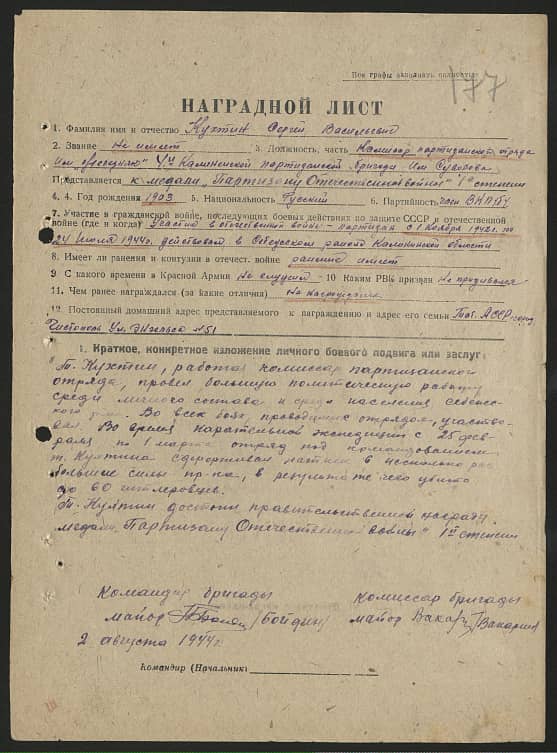 Все графы заполнять полностью
177
НАГРАДНОЙ ЛИСТ
1. Фамилия имя и отчество Кухтин Сергей Васильевич
2. Звание не имеет 3. Должность, часть Комиссар партизанского отряда
4й Калининской партизанской бригады им. Суворова
Представляется к медали „Партизану Отечественной войны" 1й степени
4. 4. Год рождения 1903 5. Национальность Русский 6. Партийность член ВКП(б)
7. Участие в гражданской войне, последующих боевых действиях по защите СССР и отечественной
войне (где и когда) Участие в отечественной войне - партизан с 1 ноября 1942г. по
24 июля 1944г. действовал в Себежском районе Калининской области
8. Имеет ли ранения и контузии в отечест. войне ранения имеет
9 С какого времени в Красной Армии не служил - 10 Каким РВК призван не призывался
11. Чем ранее награждался (за какие отличия) не награждался
12. Постоянный домашний адрес представляемого к награждению и адрес его семьи Тат. АССР город
Чистополь ул. Энгельса №51
1. Краткое, конкретное изложение личного боевого подвига или заслуг:
Т. Кухтин, работая комиссар партизанского
отряда, провел большую политическую работу
среди личного состава и среди населения себежс-
кого р-на. Во всех боях, проводимых отрядом, участво-
вал. Во время карательной экспедиции с 25 фев-
раля по 1 марта отряд под командованием
т. Кухтина сдерживал натиск в несколько раз
большие силы пр-ка, в результате чего убито
до 60 гитлеровцев.
Т. Кухтин достоин правительственной награды
медали „Партизану Отечественной войны" 1й степени
Командир бригады Комиссар бригады
майор /Бойдин/ майор Вакар /Вакарин
2 августа 1944г.
Командир (Начальник)